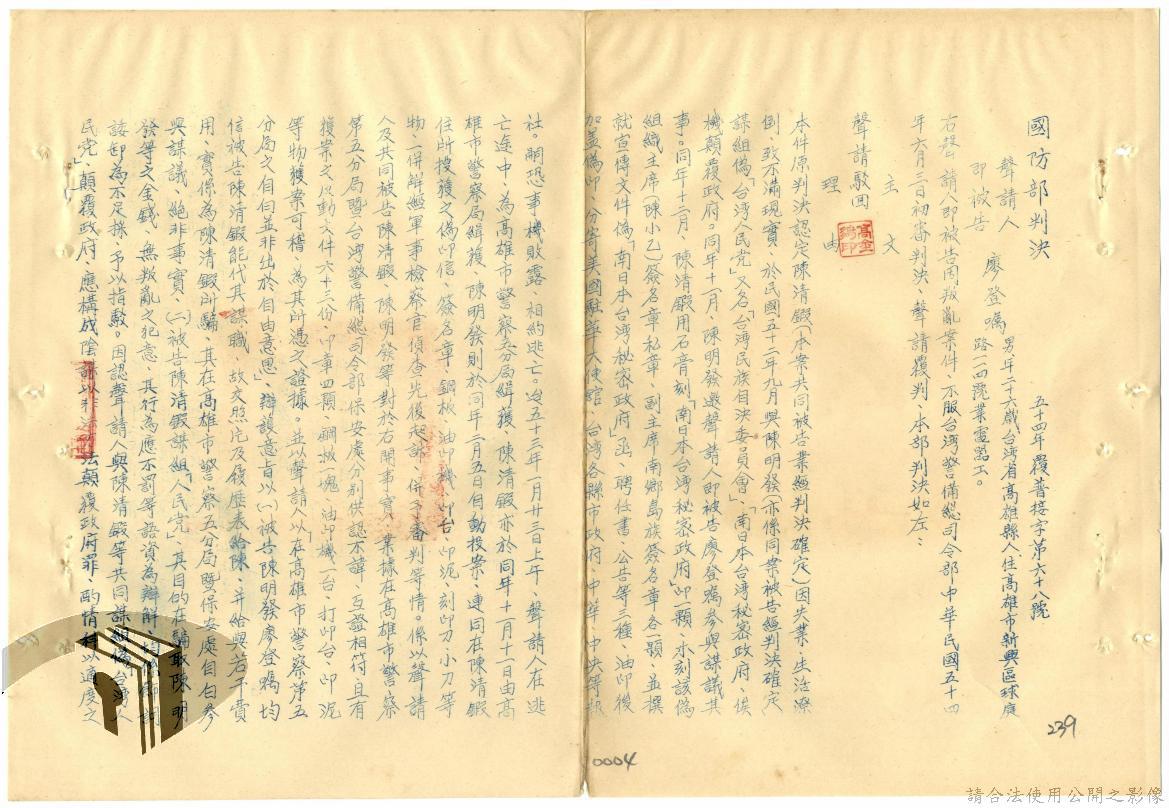 國防部判決
五十四年覆普接字第六十八號
聲請人
即被告
廖登囑 男年二十六歲台湾省高雄縣人住高雄市新興區球庭
路一四號業電器工。
右聲請人即被告因叛亂案件、不服台湾警備總司令部中華民國五十四
年六月三日初審判決、聲請覆判、本部判決如左:
主文
聲請駁回
理由
本件原判決認定陳清鍛(本案共同被告業經判決確定)因失業、生活潦
倒、致不滿現實、於民國五十二年九月與陳明發(亦係同案被告經判決確定)
謀組偽「台湾人民党」又名「台湾民族自决委員會」、「南日本台湾秘密政府」、俟
機顛覆政府。同年十一月、陳明發邀聲請人即被告廖登囑參與謀議其
事。同年十二月、陳清鍛用石膏刻「南日本台湾秘密政府」印一顆、木刻該偽
組織主席(陳小乙)簽名章私章、副主席南鄉島族簽名章各一顆、並撰
就宣傳文件偽「南日本台湾秘密政府」函、聘任書、公告等三種、油印後
加蓋偽印、分寄美國駐華大使館、台湾各縣市政府、中華、中央等報
社。嗣恐事機敗露、相約逃亡。迨五十三年一月廿三日上午、聲請人在逃
亡途中、為高雄市警察五分局緝獲、陳清鍛亦於同年十一月十一日由高
雄市警察局緝獲、陳明發則於同年二月五日自動投案、連同在陳清鍛
住所搜獲之偽印信、簽名章、鋼板、油印機、印台、印泥、刻印刀、小刀等
物、一併解經軍事檢察官偵查先後起訴、併予審判等情。係以聲請
人及共同被告陳清鍛、陳明發等對於右開事實、業據在高雄市警察
第五分局暨台湾警備總司令部保安處分別供認不諱、互證相符、且有
獲案之反動文件六十三份、印章四顆、鋼板一塊、油印機一台、打印台、印泥
等物獲案可稽、為其所憑之證據。並以聲請人以「在高雄市警察第五
分局之自白並非出於自由意思」、辯護意旨以(一)被告陳明發廖登囑均
信被告陳清鍛能代其謀職、故交照片及履歷表給陳、并給與若干費
用、實係為陳清鍛所騙、其在高雄市警察五分局暨保安處自白參
與謀議、絕非事實、(二)被告陳清鍛謀組「人民党」、其目的在騙取陳明
發等之金錢、無叛亂之犯意、其行為應不罰等語資為辯解、均係卸詞
諉卸為不足採、予以指駁。因認聲請人與陳清鍛等共同謀組偽「台湾人
民党」、顛覆政府、應構成陰謀以非法顛覆政府罪、酌情科以適度之
239
0004
請合法使用公開之影像